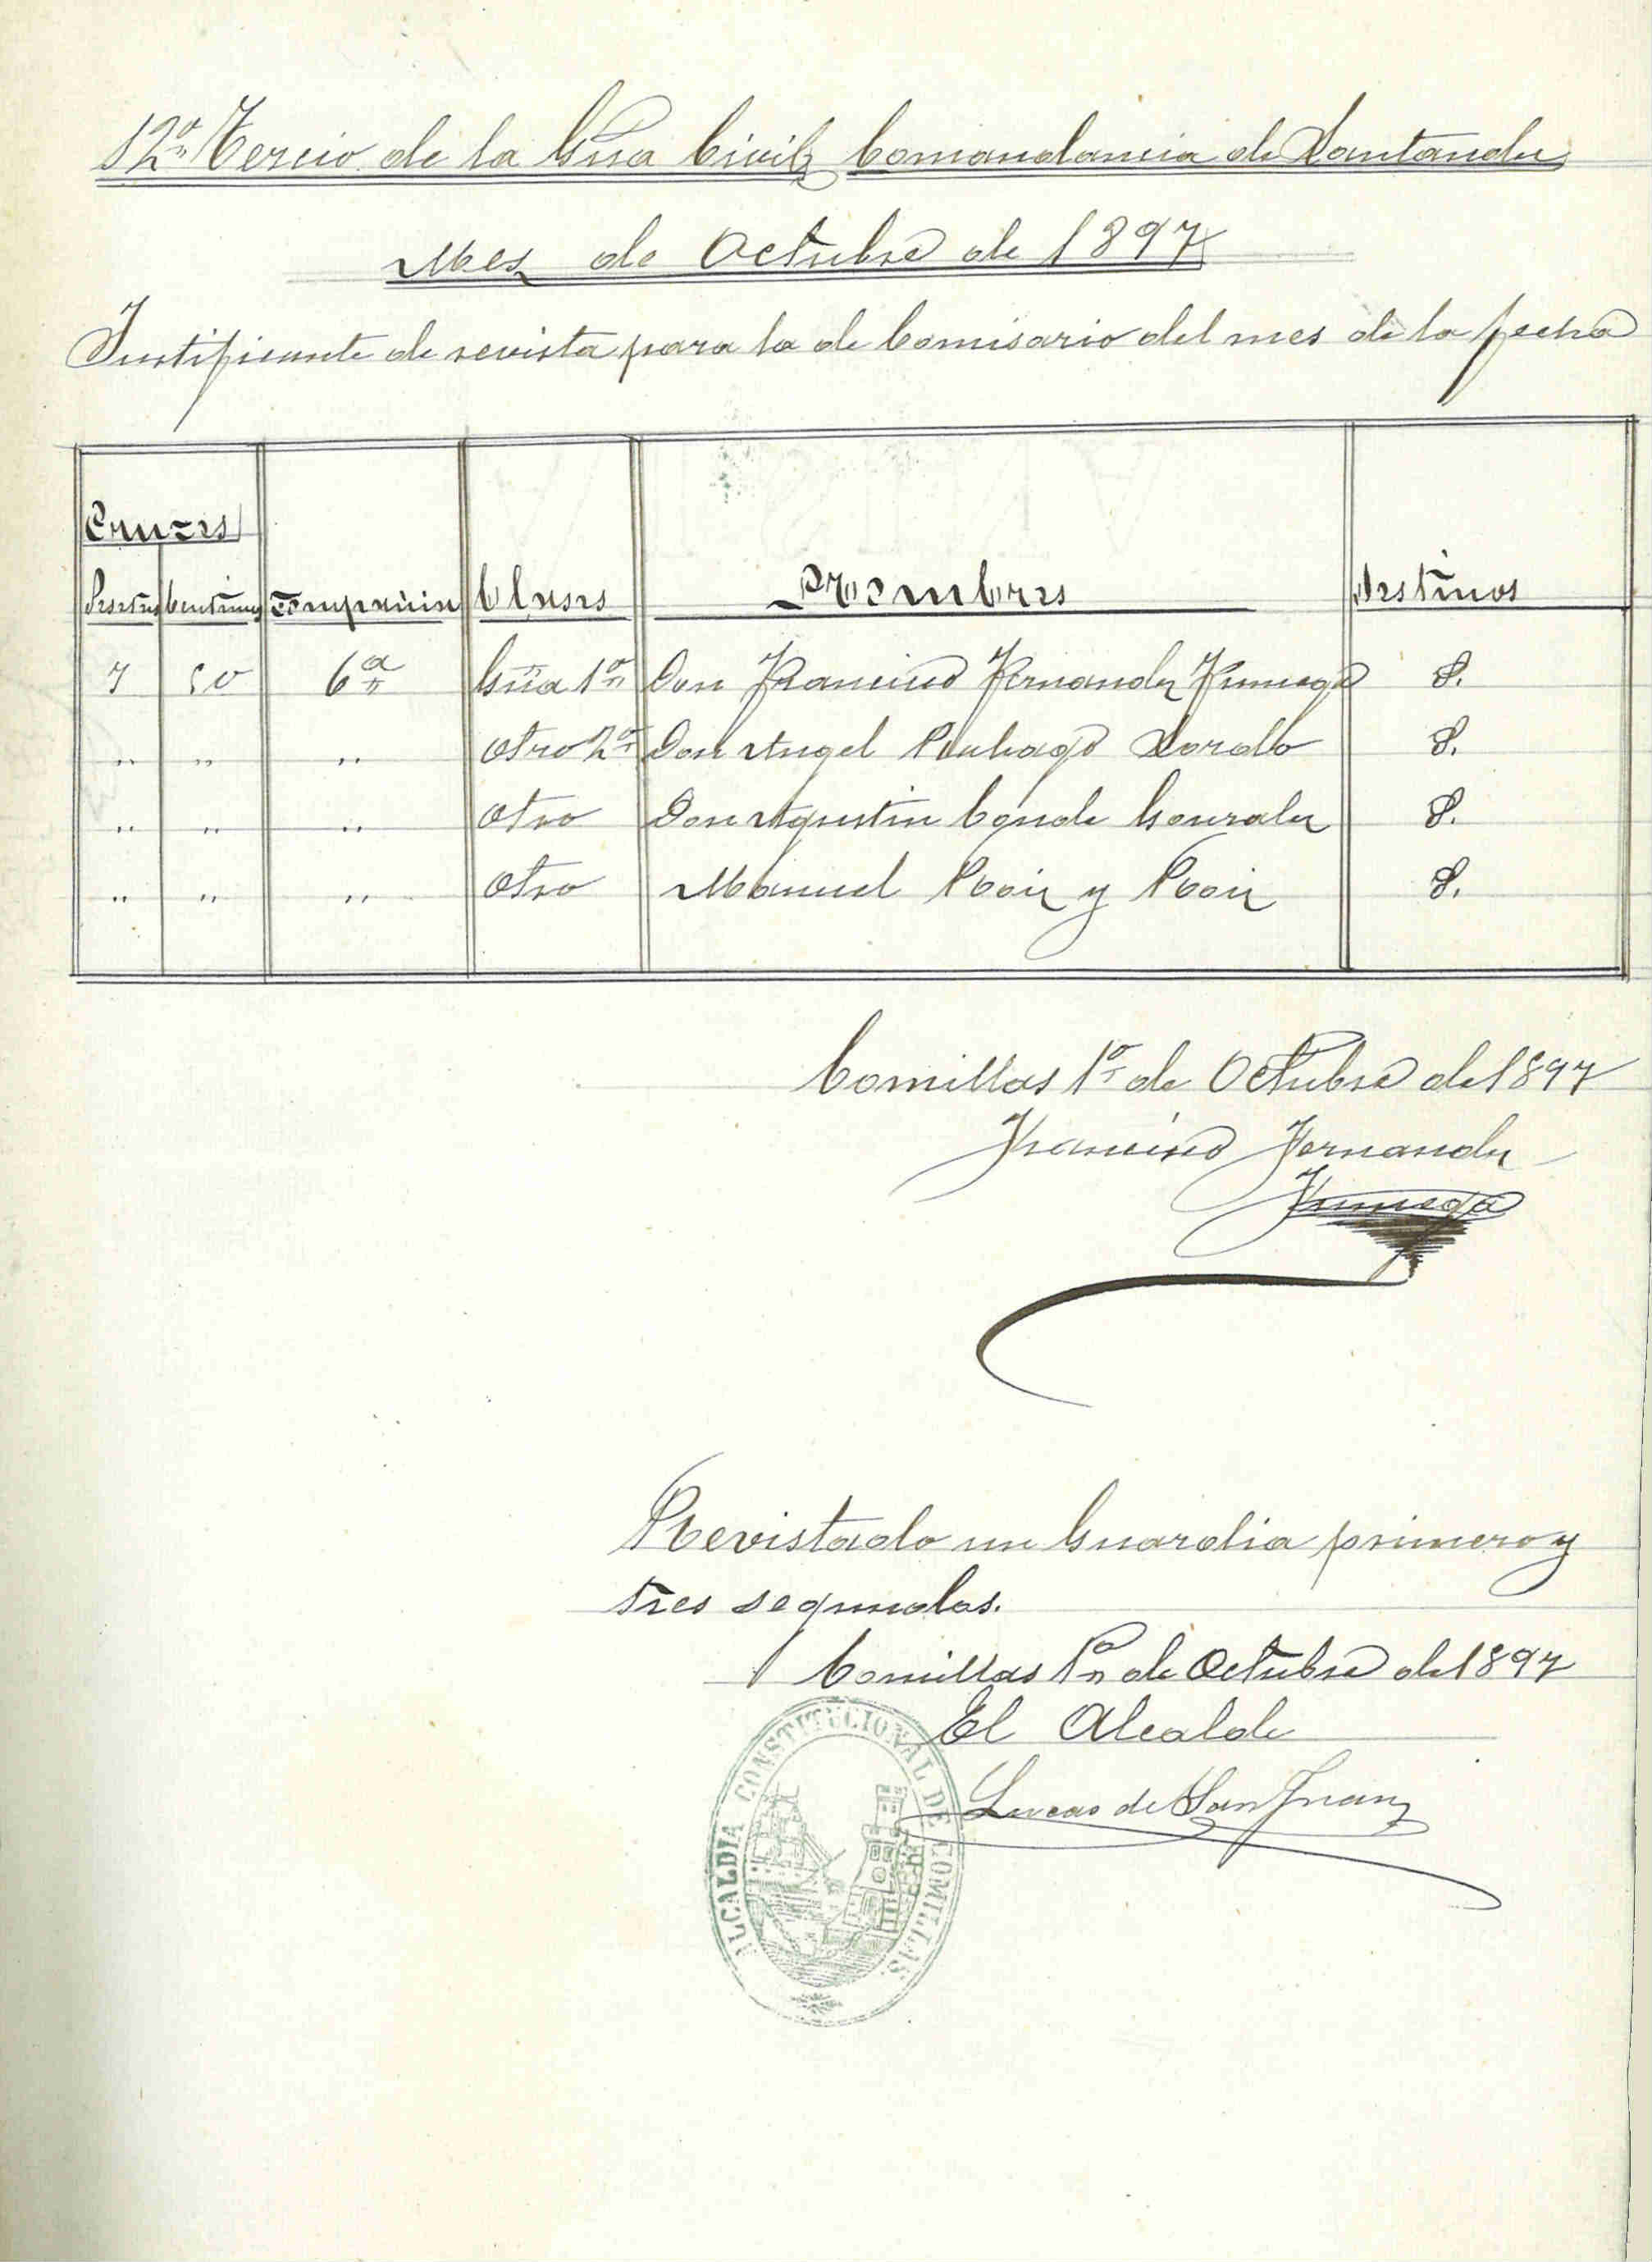 12º Tercio de la Gria Civil Comandancia de Santander
Mes de Octubre de 1897
Justificante de revista para la de Comisario del mes de la fecha
Cruzes
Pesetas Centimos Compañia Clases Nombres Destinos
7 50 6ª Gria 1º Don Francisco Fernandez P.
" " " Otro 2º Don Angel Sordo P.
" " " Otro Don Agustin Conde Gonzalez P.
" " " Otro Manuel Roiz y Roiz P.
Comillas 1º de Octubre de 1897
Francisco Fernandez
Revistado un Guardia primero y
tres segundos.
Comillas 1º de Octubre de 1897
El Alcalde
Lucas de San Juan
ALCALDIA CONSTITUCIONAL DE COMILLAS